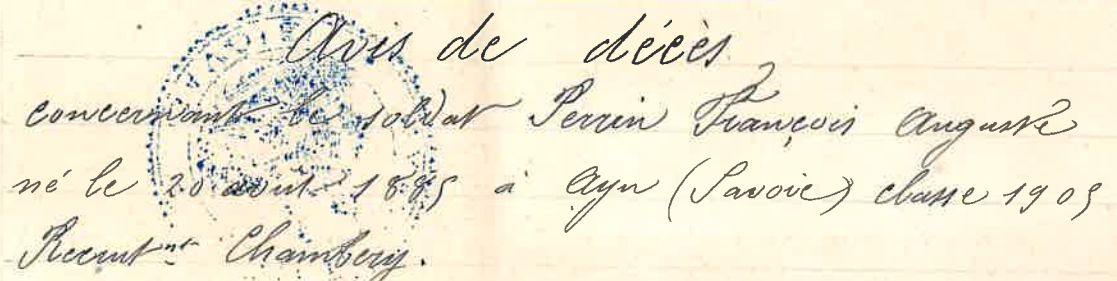 Avis de décès
concernant le soldat Perrin François Auguste
né le 20 août 1885 à Ayn (Savoie) classe 1905
Recrutnt Chambery.